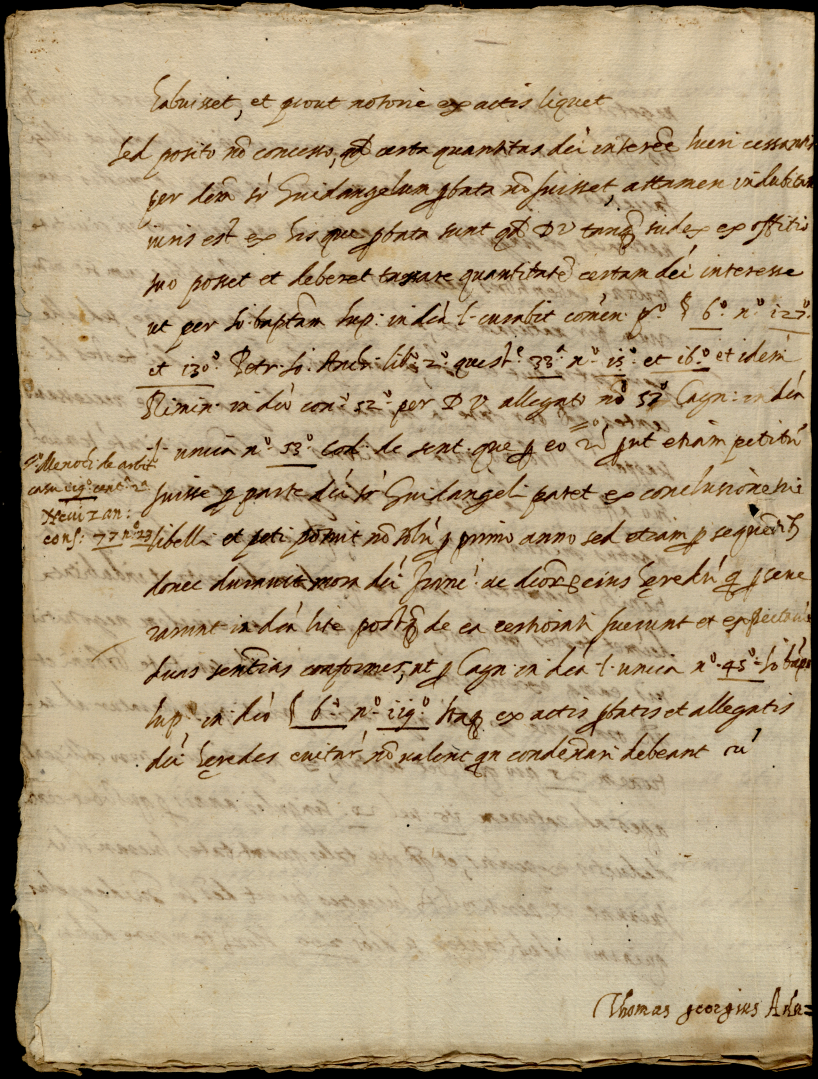 habuisset, et prout notorie ex actis liquet
Sed posito nō concesso, qd̄ certa quantitas dc̄i interēe lucri cessantis
per dc̄m sr̄ Guidangelum ꝓbata nō fuisset, attamen indubitati
iuris est ex his que ꝓbata sunt qd̄ D V tanq̄ iudex ex offitio
suo posset et deberet taxare quantitatē certam dc̄i interesse
ut per Jo: bapt̄am Lup: in dc̄a l. curabit comen: pº § 6º nº 127º
et 130º Petr: Jo: Anch: libº 2º quest.e 33.a nº 15º et 16º et idem
Rimin: in dc̄o con.º 52º per D V allegato nº 52º Cagn: in dc̄a
l. unica nº 53º Cod: de sent. que ꝓ eo ꝓut etiam petitū
fuisse ꝓ parte dc̄i sr̄ Guidangeli patet ex conclusione sui
libelli et peti potuit nō solū ꝓ primo anno sed etiam ꝓ sequentib
donec duravit mora dc̄i ac eius heredū
in dc̄a lite postq̄ de ea certiorati fuerunt et
duas sentētias conformes, ut ꝓ Cagn: in dc̄a l. unica nº 45º Jo: bapt
Lup: in dc̄o § 6º nº 119º Itaq ex actis ꝓbatis et allegatis
dc̄i heredes evitar' nō valent qn condēnari debeant
Menoch: de arbit
casu cent.a 2.a
Nevizan:
cons: 77 nº 23
Thomas georgius